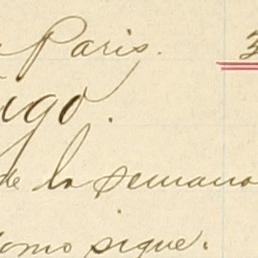 Paris. 3
igo.
de la semana
como sigue.